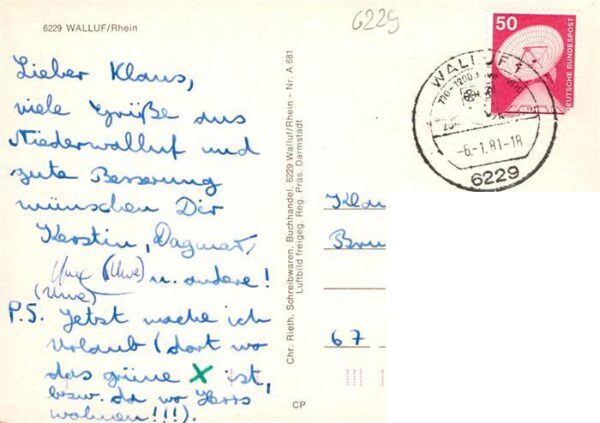 6229 WALLUF/Rhein
6229
Lieber Klaus,
viele Grüße aus
Niederwalluf und
gute Besserung
wünschen Dir
Kerstin, Dagmar,
Uwe (Uwe) u. andere!
(Uwe)
P.S. Jetzt mache ich
Urlaub (dort wo
das grüne X ist,
bzw. da wo
wohnen!!!).
Chr. Rieth, Schreibwaren, Buchhandel, 6229 Walluf/Rhein - Nr. A 681
Luftbild freigeg. Reg. Präs. Darmstadt
CP
50
DEUTSCHE BUNDESPOST
WALLUF 1
-6.-1.81-18
6229
Klau
Bru
67